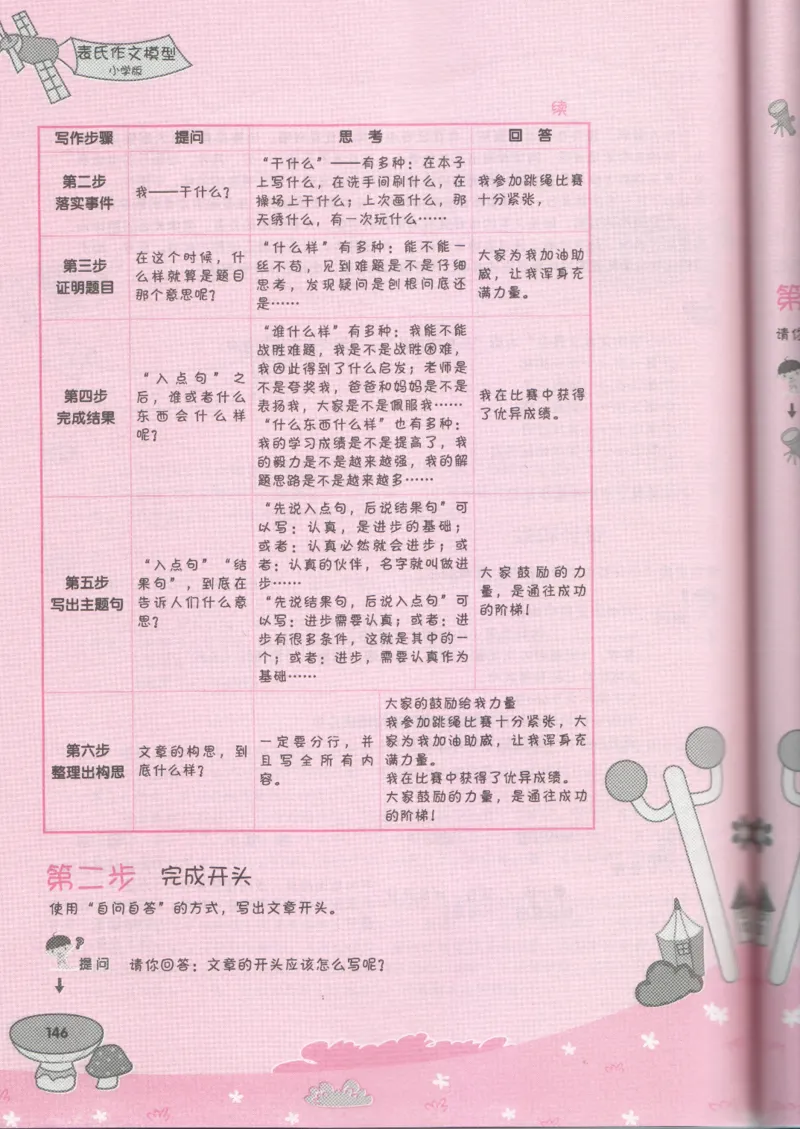 袁氏作文模型
小学版
续
写作步骤 提问 思考 回答
第二步
落实事件
我——干什么？
“干什么”——有多种：在本子
上写什么，在洗手间刷什么，在
操场上干什么；上次画什么，那
天绣什么，有一次玩什么……
我参加跳绳比赛
十分紧张，
第三步
证明题目
在这个时候，什
么样就算是题目
那个意思呢？
“什么样”有多种：能不能一
丝不苟，见到难题是不是仔细
思考，发现疑问是刨根问底还
是……
大家为我加油助
威，让我浑身充
满力量。
第四步
完成结果
“入点句”之
后，谁或者什么
东西会什么样
呢？
“谁什么样”有多种：我能不能
战胜难题，我是不是战胜困难，
我因此得到了什么启发；老师是
不是夸奖我，爸爸和妈妈是不是
表扬我，大家是不是佩服我……
“什么东西什么样”也有多种：
我的学习成绩是不是提高了，我
的毅力是不是越来越强，我的解
题思路是不是越来越多……
我在比赛中获得
了优异成绩。
第五步
写出主题句
“入点句”“结
果句”，到底在
告诉人们什么意
思？
“先说入点句，后说结果句”可
以写：认真，是进步的基础；
或者：认真必然就会进步；或
者：认真的伙伴，名字就叫做进
步……
“先说结果句，后说入点句”可
以写：进步需要认真；或者：进
步有很多条件，这就是其中的一
个；或者：进步，需要认真作为
基础……
大家鼓励的力
量，是通往成功
的阶梯！
第六步
整理出构思
文章的构思，到
底什么样？
一定要分行，并
且写全所有内
容。
大家的鼓励给我力量
我参加跳绳比赛十分紧张，大
家为我加油助威，让我浑身充
满力量。
我在比赛中获得了优异成绩。
大家鼓励的力量，是通往成功
的阶梯！
第二步 完成开头
使用“自问自答”的方式，写出文章开头。
提问 请你回答：文章的开头应该怎么写呢？
146
第
请你